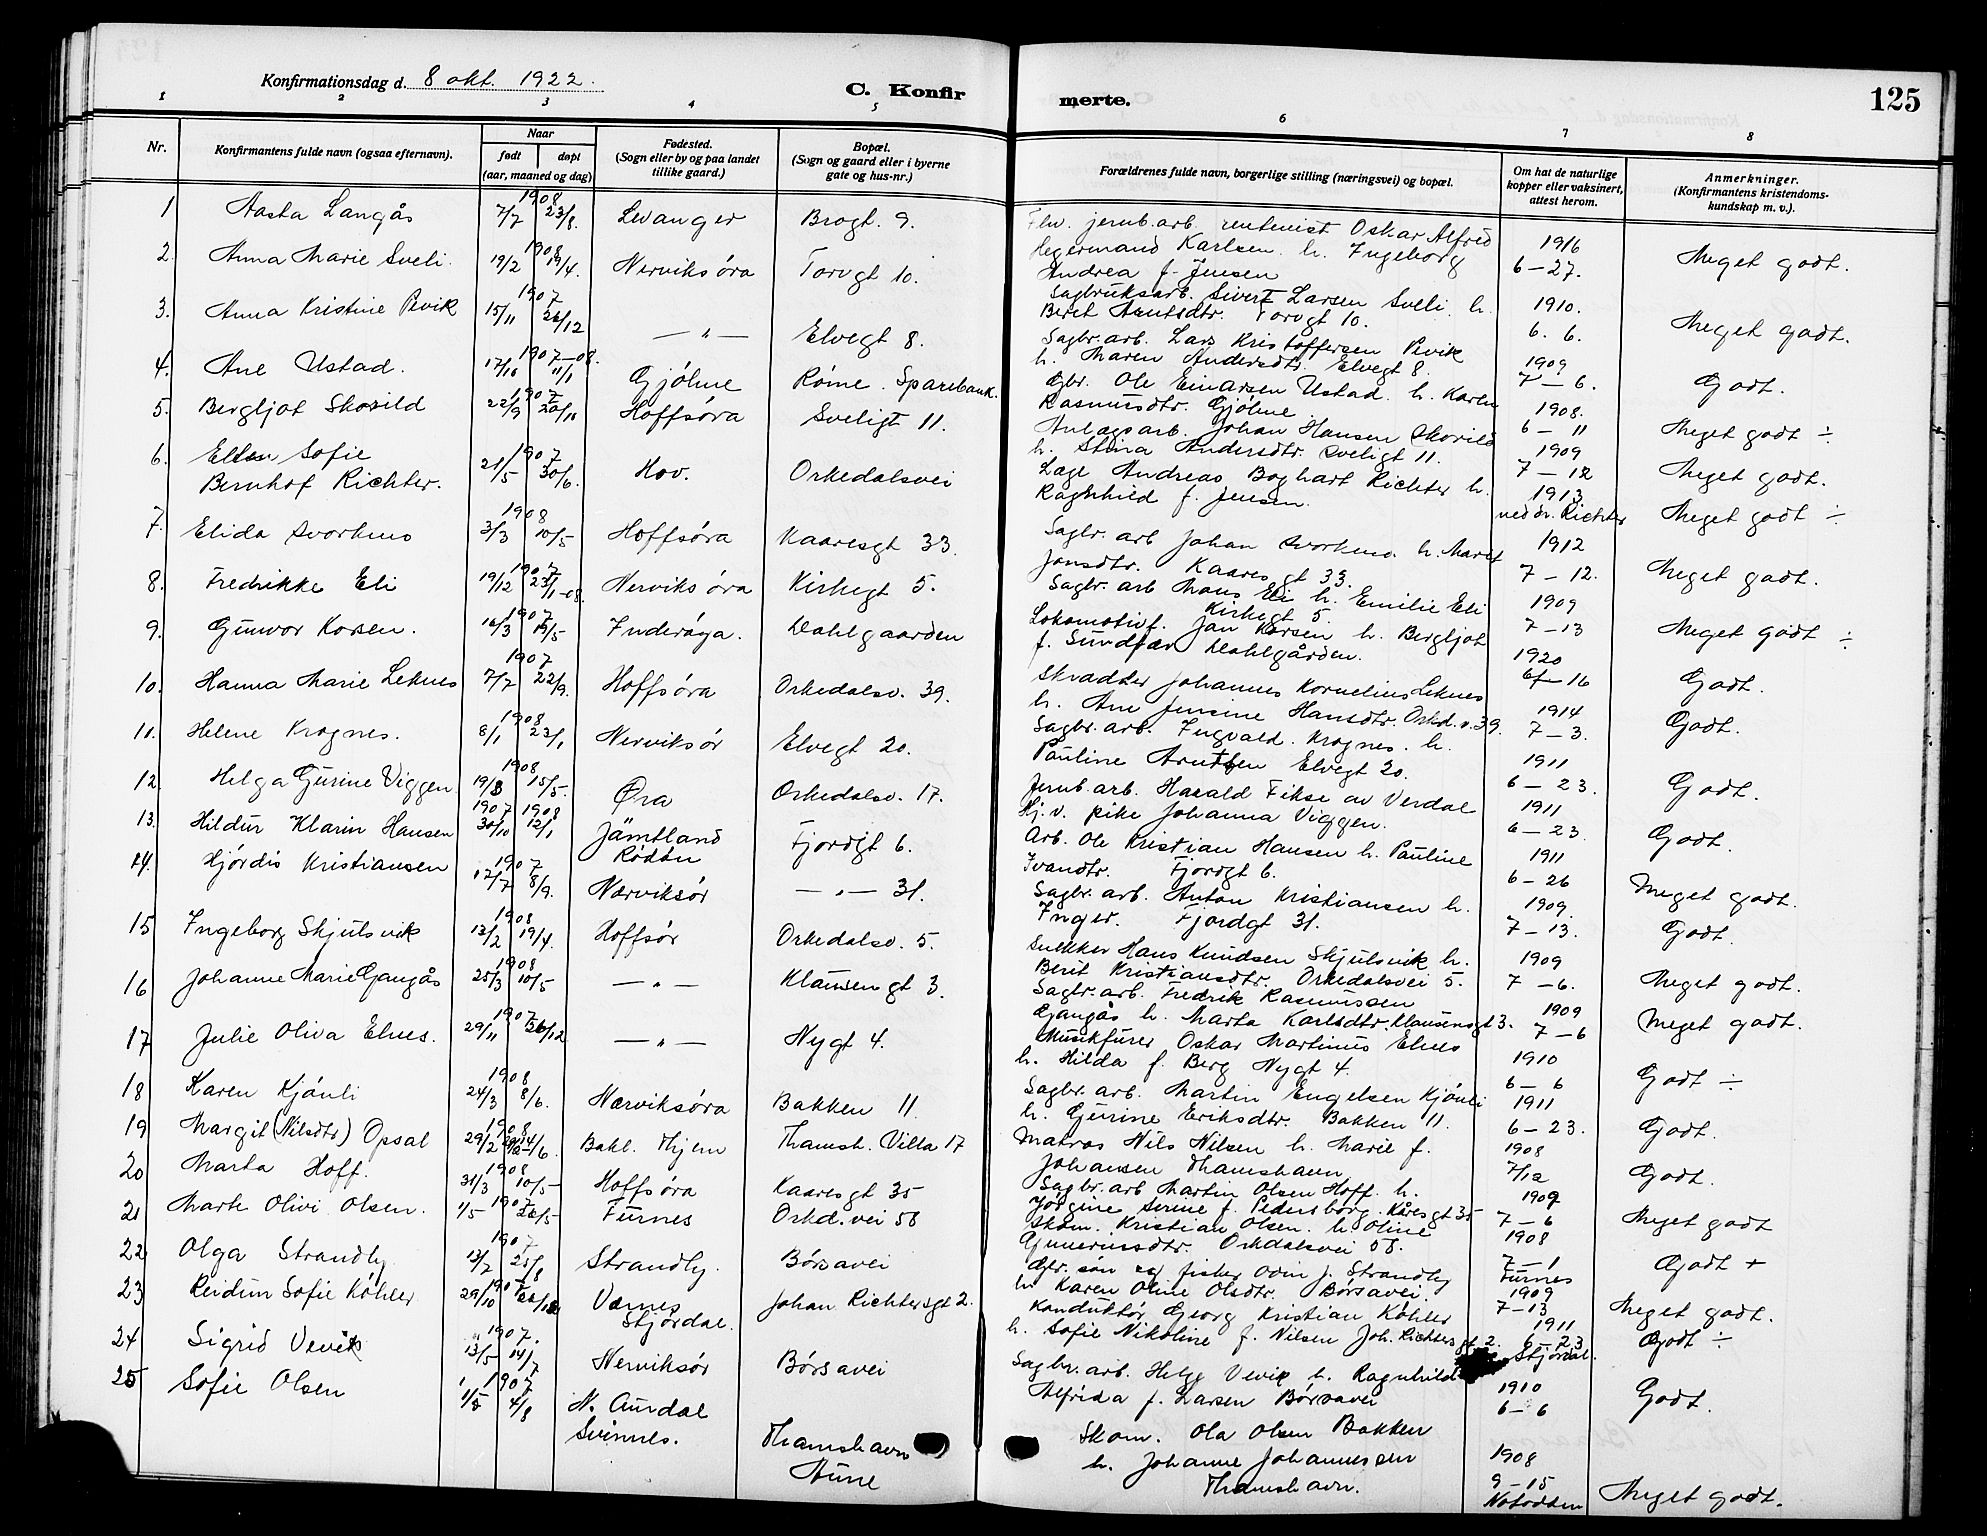 Konfirmationsdag d. 8 okt. 1922.
C. Konfir
merte.
125
1 2 3 4 5 6 7 8
Nr.
Konfirmantens fulde navn (ogsaa efternavn).
Naar
født døpt
(aar, maaned og dag)
Fødested.
(Sogn eller by og paa landet
tillike gaard.)
Bopæl.
(Sogn og gaard eller i byerne
gate og hus-nr.)
Forældrenes fulde navn, borgerlige stilling (næringsvei) og bopæl.
Om hat de naturlige
kopper eller vaksinert,
attest herom.
Anmerkninger.
(Konfirmantens kristendoms-
kundskap m. v.).
1 Aasta Langås 1908 7/7 23/8. Levanger Brogt. 9.
jernb.arb. rentenist Oskar Alfred
Hegermand Karlsen h. Ingeborg
Andrea f. Jensen
1916
6–27.
Meget godt.
2. Anna Marie Sveli. 1908 19/2 19/4. Nerviksöra Torvgt 10.
Sagbruksarb. Sivert Larsen Sveli h.
Berit Arntsdtr. Torvgt 10.
1910.
6. 6.
Meget godt.
3. Anna Kristine Pevik 1907 15/11 26/12 — " — Elvegt 8.
Sagbr.arb. Lars Kristoffersen Pevik
h. Maren Andersdtr. Elvegt 8.
1909
7–6.
Godt.
4. Ane Ustad. 1907–08. 17/10 11/1 Gjölme Röme. Sparebank.
Gbr. Ole Einarsen Ustad. h. Karen
Rasmusdtr. Gjölme.
1908.
6–11
Meget godt ÷
5. Bergljot Skorild 1907 22/9 20/10 Hoffsöra Sveligt 11.
Anlægsarb. Johan Hansen Skorild
h. Stina Andersdtr. Sveligt 11.
1909
7–12
Meget godt.
6. Ellen Sofie
Bernhof Richter. 1907 21/5 30/6. Hov. Orkedalsvei
Læge Andreas Boghart Richter h.
Ragnhild f. Jensen.
1913
ved dr. Richter
Meget godt ÷
7. Elida Svorkmo 1908 3/3 10/5 Hoffsöra Kaaresgt 33.
Sagbr. arb Johan Svorkmo h. Marit
Jonsdtr. Kaaresgt 33.
1912
7–12.
Meget godt.
8. Fredrikke Eli 1907 19/12 23/1–08. Nerviksöra Kirkegt 5.
Sagbr. arb Hans Eli h. Emilie Eli
Kirkegt 5.
1909
7–13
Meget godt ÷
9. Gunvor Korsen. 1907 16/3 19/5 Inderöya. Dahlgaarden
Lokomotivf. Jan Korsen h. Bergljot
f. Sundfær Dahlgården.
1920
6/–16
Godt.
10. Hanna Marie Leknes 1907 7/7 22/9. Hoffsöra Orkedalsv. 39.
Skradder Johannes Kornelius Leknes
h. Ane Jensine Hansdtr. Orkd.v.39.
1914
7–3.
Godt.
11. Helene Krognes. 1908 8/1 23/1 Nerviksör Elvegt 20.
Sagbr. arb. Ingvald. Krognes. h.
Pauline Arntsen Elvegt 20.
1911
6–23.
Godt.
12. Helga Gurine Viggen 1908 19/3 15/5. Øra Orkedalsv. 17.
Jernb.arb. Harald Fikse av Verdal
Hj.v. pike Johanna Viggen.
1911
6–23.
Godt.
13. Hildur Klarin Hansen 1907 30/10 1908 12/1 Jämtland
Rödön Fjordgt 6.
Arb. Ole Kristian Hansen h. Pauline
Ivandtr. Fjordgt 6.
1911
6–26
Meget godt.
14. Hjördis Kristiansen 1907 17/7 8/9. Nærviksör — " — 31.
Sagbr. arb. Anton Kristiansen h.
Inger. Fjordgt 31.
1909.
7–13.
Godt.
15 Ingeborg Skjulsvik 1908 13/2 19/4. Hoffsör Orkedalsv. 5.
Snekker Hans Knudsen Skjulsvik h.
Berit Kristiansdtr. Orkedalsvei 5.
1909
7–6.
Meget godt.
16 Johanne Marie Gangås 1908 25/3 10/5 — " — Klausengt 3.
Sagbr. arb. Fredrik Rasmussen
Gangås h. Marta Karlsdtr. Klausensgt 3.
1909
7–6
Meget godt.
17 Julie Oliva Elnes. 1907 29/11 26/12 — " — Nygt 4.
Musikfürer Oskar Martinus Elnes
h. Hilda f. Berg Nygt 4.
1910
6–6
Godt ÷
18 Karen Kjönli 1908 24/3 8/6. Nærviksöra Bakken 11.
Sagbr. arb. Martin Engelsen Kjönli
h. Gurine Eriksdtr. Bakken 11.
1911
6–23.
Godt.
19 Margit (Nilsdtr) Opsal 1908 29/2 14/6 Bakl. Thjem Thamsh. Villa 17
Matros Nils Nilsen h. Marie f.
Johansen Thamshavn
1908
7/12
Godt.
20 Marta Hoff. 1908 31/3 10/5 Hoffsöra Kaaresgt 35
Sagbr. arb Martin Olsen Hoff. h.
Jörgine Serine f. Pedersborg. Kåresgt 35
1909
7–6
Meget godt
21 Marte Olivi Olsen. 1907 1/5 26/5 Furnes Orkd.vei 58
Skom. Kristian Olsen. h. Oline
Guneriusdtr. Orkdalsvei 58.
1908
7–1
Furnes
Godt +
22 Olga Strandly 1907 13/7 25/8 Strandly. Børsavei
Gbr. søn og fisker Odin J. Strandly
h. Karen Oline Olsdtr. Børsavei.
1909
7–13
Meget godt.
23 Reidun Sofie Köhler 1907 29/10 Værnes
Stjördal. Johan Richtersgt 2.
Konduktör Georg Kristian Köhler
h. Sofie Nikoline f. Nilsen Joh. Richtersgt 2.
1911
6–23
Stjørdal.
Godt ÷
24 Sigrid Vevik 1907. 13/5 14/7 Nerviksör Börsavei
Sagbr. arb. Helge Vevik h. Ragnhild
Alfrida f. Larsen Börsavei
1910
6–6
Godt.
25 Sofie Olsen 1907 1/5 4/8 N. Aurdal
Svennes. Thamshavn
Aune
Skom. Ola Olsen Bakken
h. Johanne Johannessen
Thamshavn.
1908
9–15
Notodden
Meget godt.